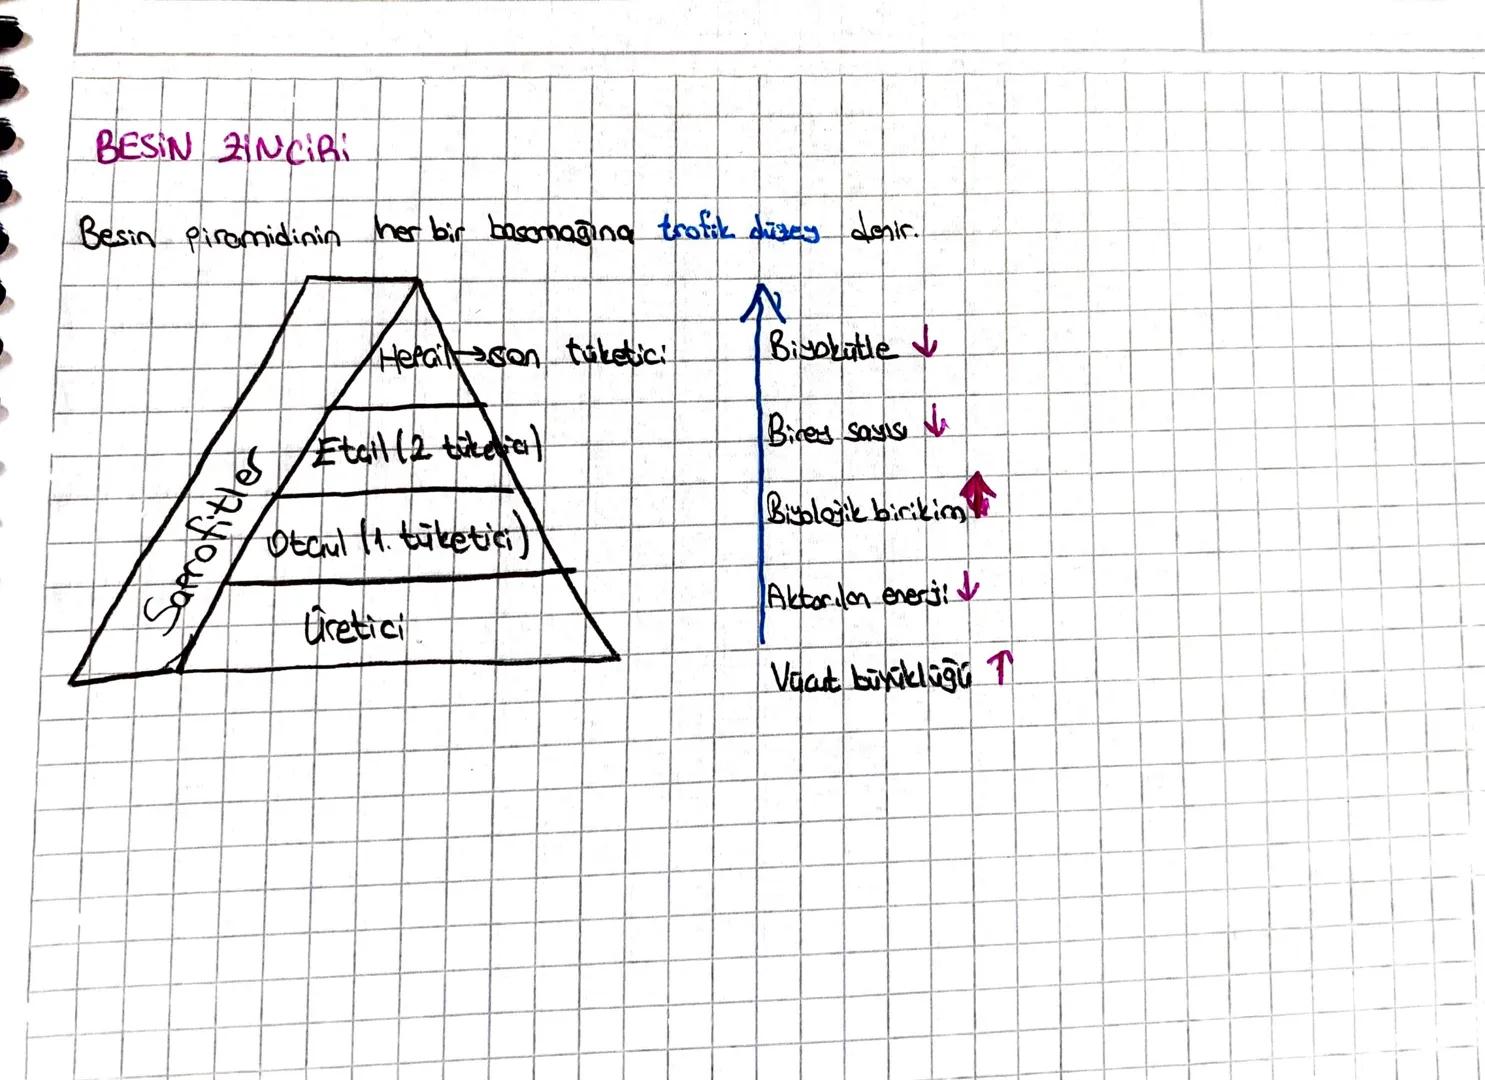 BESİN ZİNCİRİ
Besin piramidinin her bir basamağına trofik düzey denir.
Hepcil → son tüketici
Etcil (2 tüketici)
Otcul (1. tüketici)
Üretici
Saprofitler
Biyokütle ↓
Birey sayısı ↓
Biyolojik birikim ↑
Aktarılan enerji ↓
Vücut büyüklüğü ↑